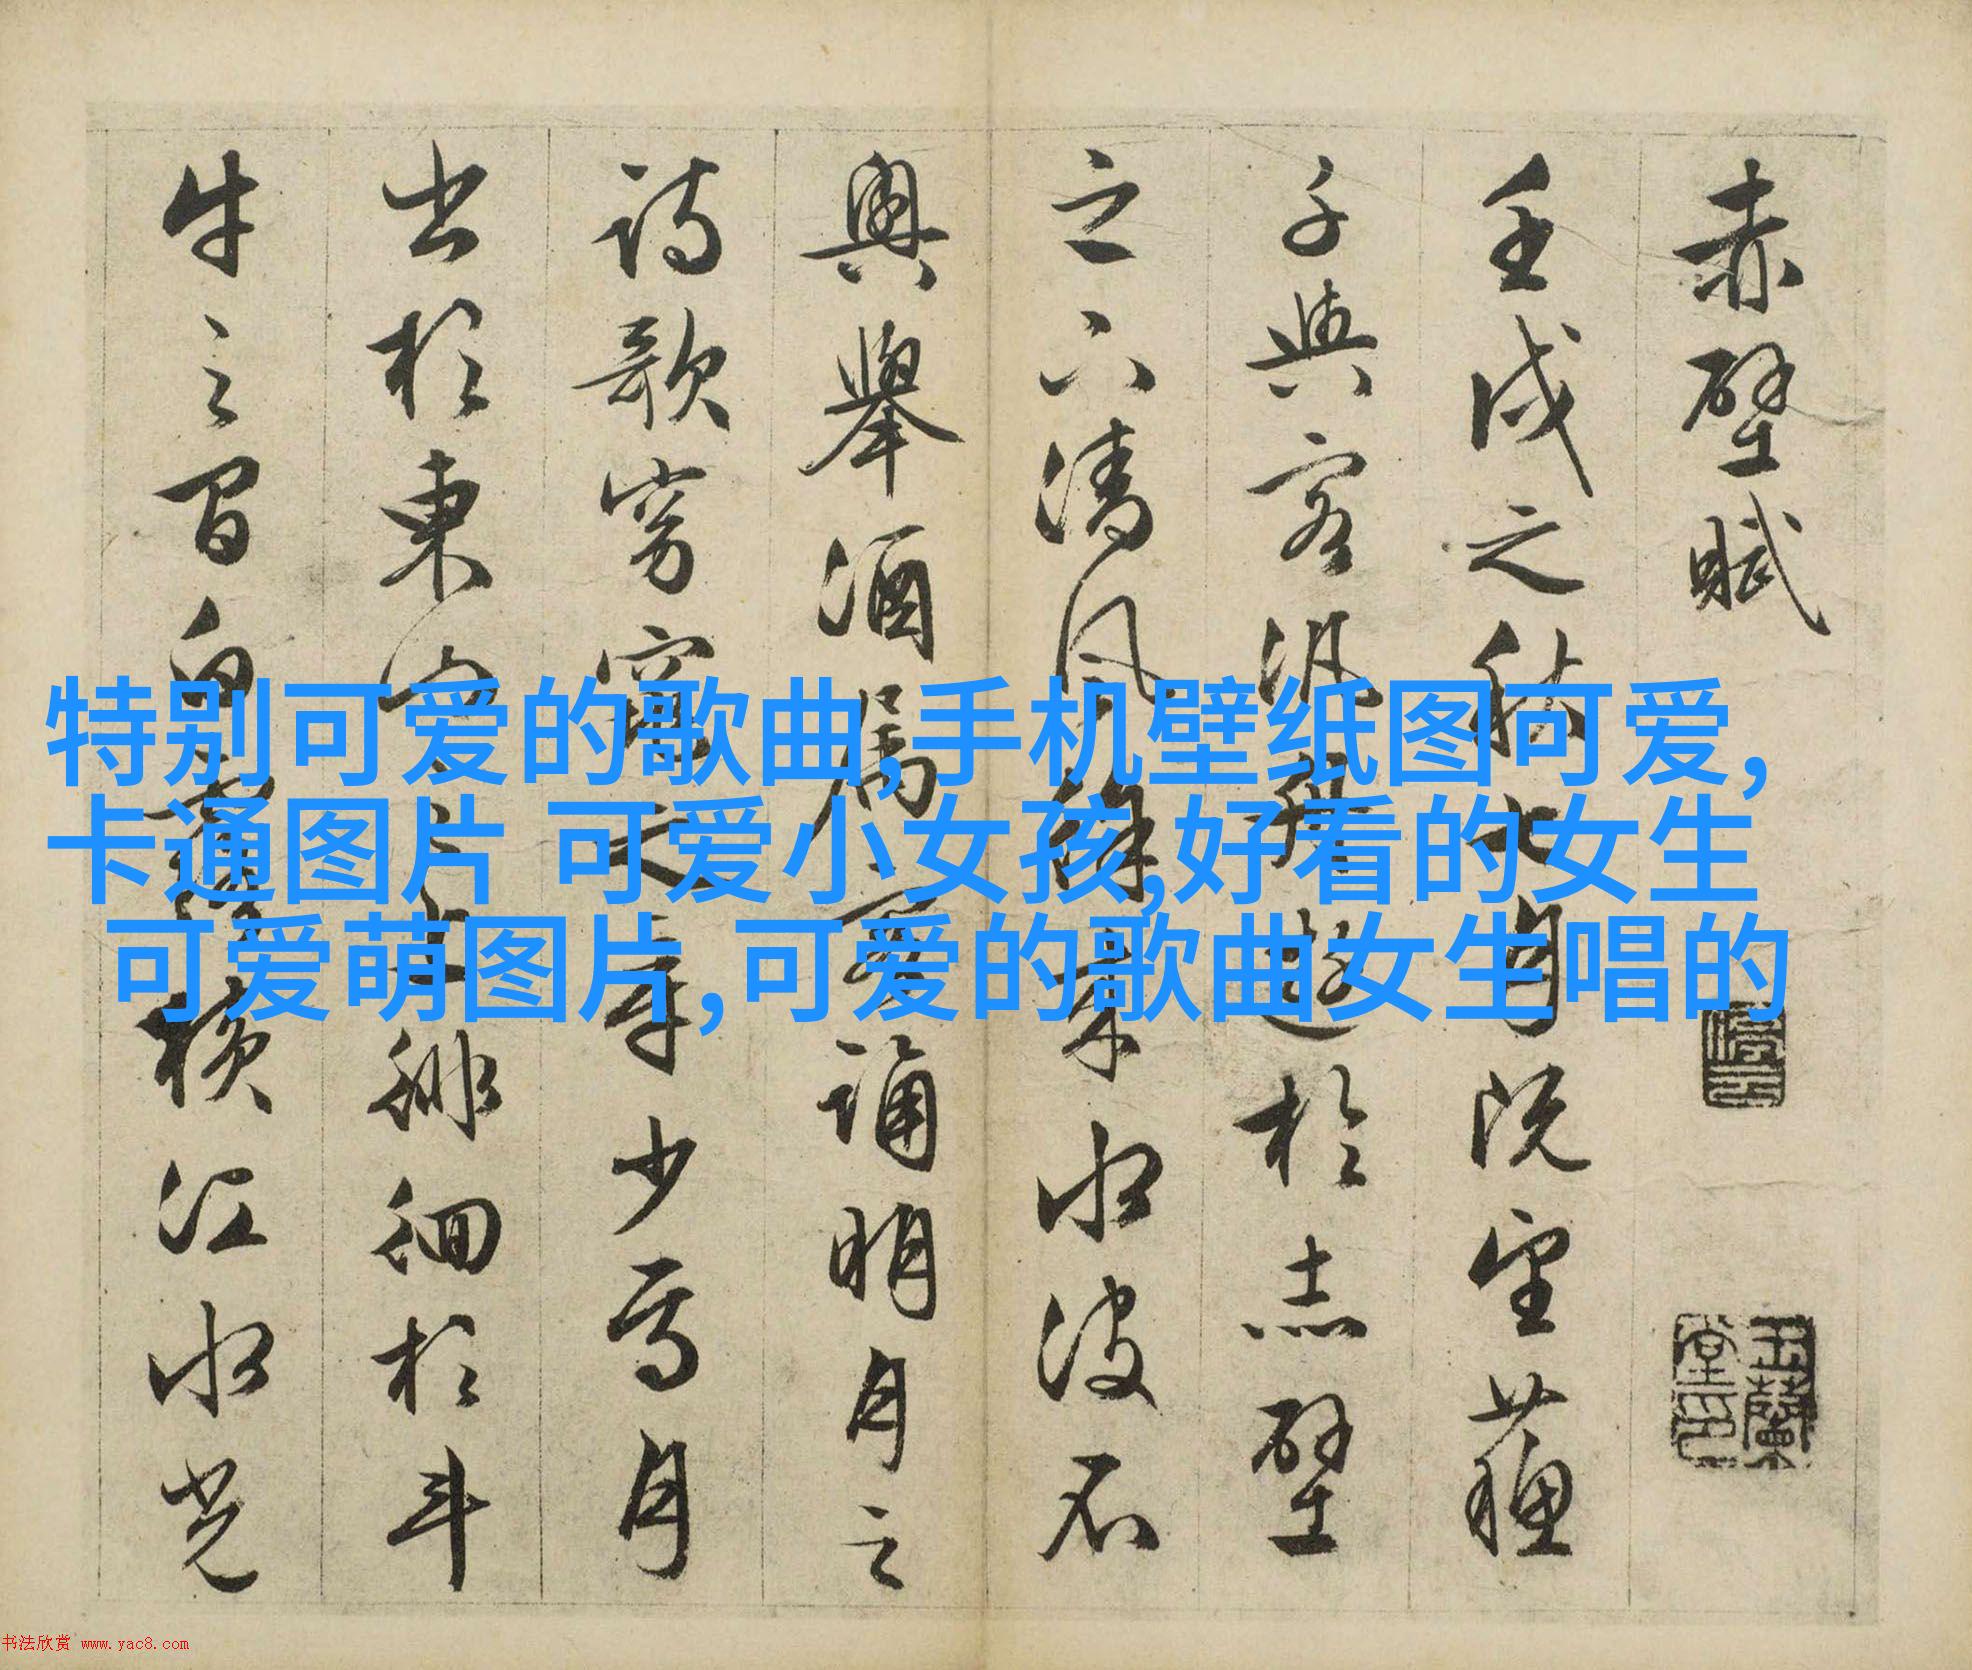 赤壁賦
壬戌之秋七月既望蘇
子與客汎舟遊於赤壁
之下清風徐來水波不
興舉酒屬客誦明月之
詩歌窈窕之章少焉月
出於東山之上徘徊於斗
牛之間白露橫江水光
玉蘭堂印
特别可爱的歌曲,手机壁纸图可爱,
卡通图片 可爱小女孩,好看的女生
可爱萌图片,可爱的歌曲女生唱的
书法欣赏 www.yac8.com